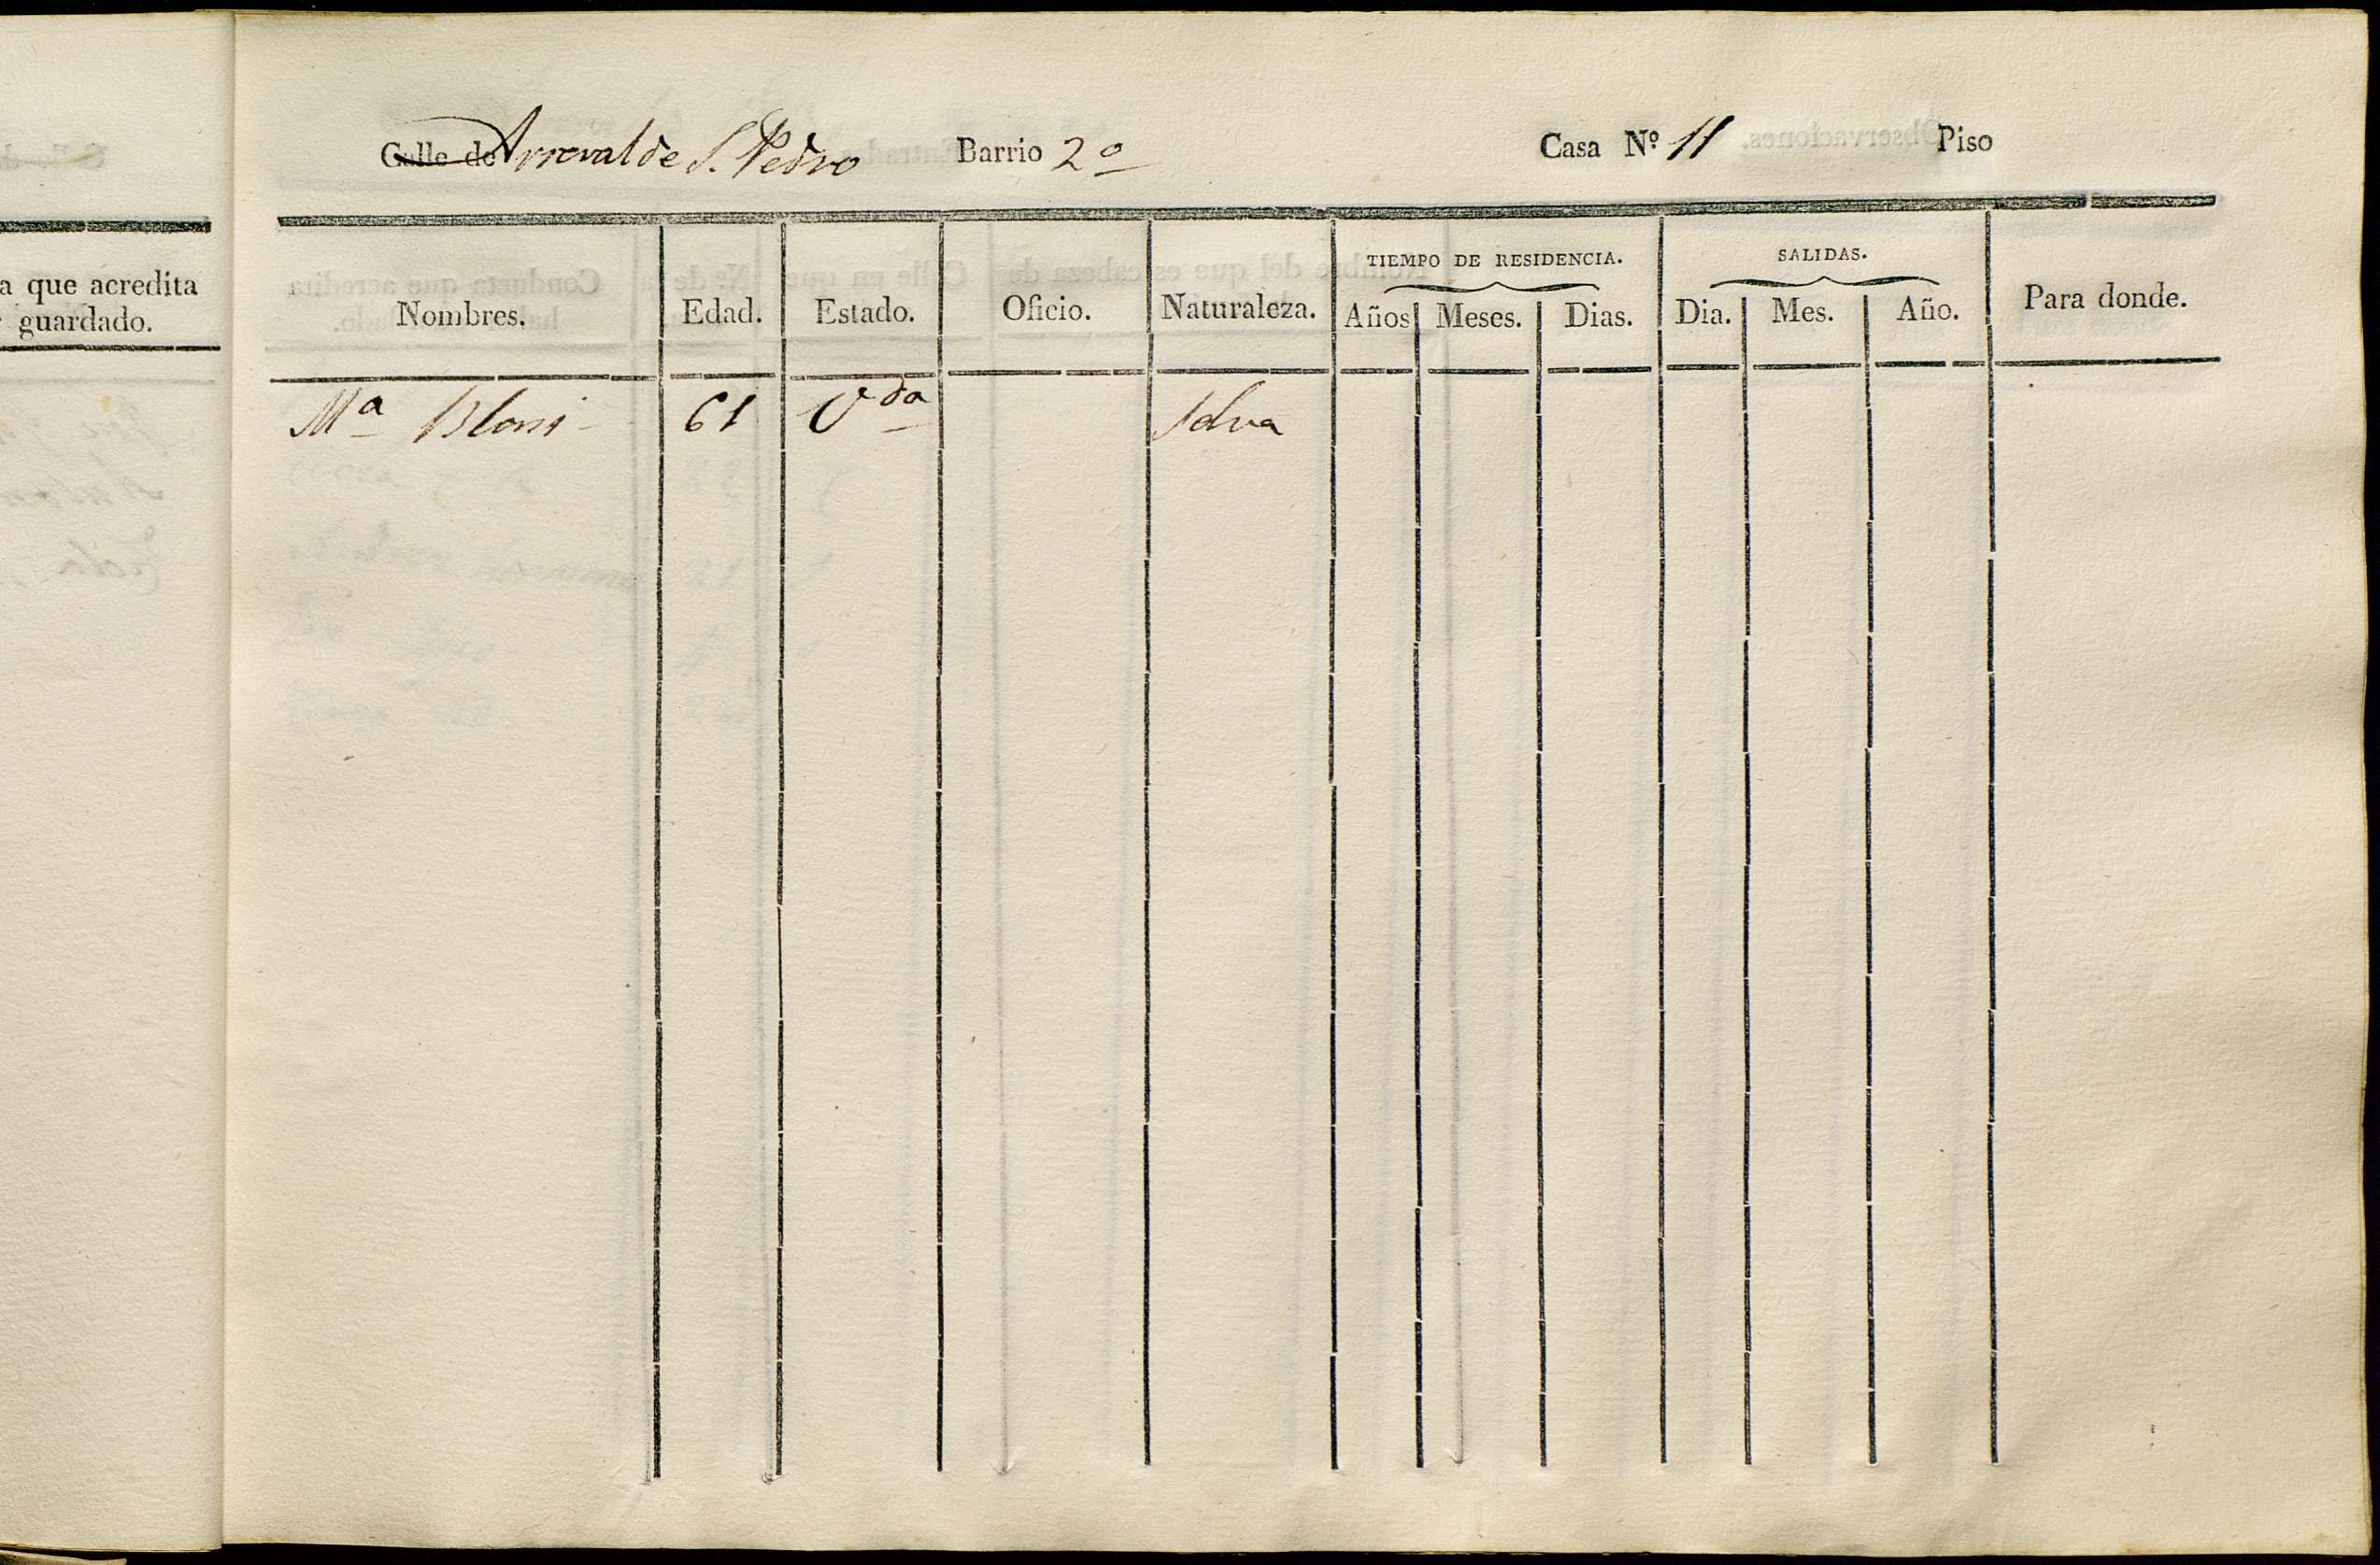 a que acredita
guardado.
Calle de Arraval de S. Pedro Barrio 2º Casa Nº 11 Piso
Nombres. Edad. Estado. Oficio. Naturaleza. TIEMPO DE RESIDENCIA. Años Meses. Dias. SALIDAS. Dia. Mes. Año. Para donde.
Mª 61 Vda